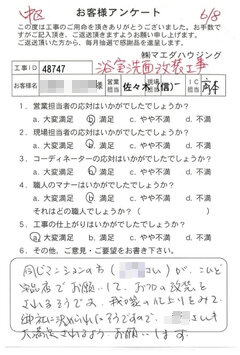 中区 6/8
お客様アンケート
この度は工事のご用命を頂きありがとうございました。お手数で
すがご記入頂き、ご返送頂きますようお願い申し上げます。
ご返送頂いた方から、毎月抽選で感謝品を進呈します。
㈱マエダハウジング
工事ID 48747 浴室洗面改装工事
お客様名 様 営業担当 佐々木(信)
1. 営業担当者の応対はいかがでしたでしょうか?
a. 大変満足 b. 満足 c. やや不満 d. 不満
2. 現場担当者の応対はいかがでしたでしょうか?
a. 大変満足 b. 満足 c. やや不満 d. 不満
3. コーディネーターの応対はいかがでしたでしょうか?
a. 大変満足 b. 満足 c. やや不満 d. 不満
4. 職人のマナーはいかがでしたでしょうか?
a. 大変満足 b. 満足 c. やや不満 d. 不満
それはどの職人でしょうか?( )
5. 工事の仕上がりはいかがでしたでしょうか?
a. 大変満足 b. 満足 c. やや不満 d. 不満
6. その他、ご意見・ご要望をお書き下さい。
同じマンションの
お願いして、
されるそうです。我が家の
御社に決められたそうですので、
大満足されるよう、お願いします。